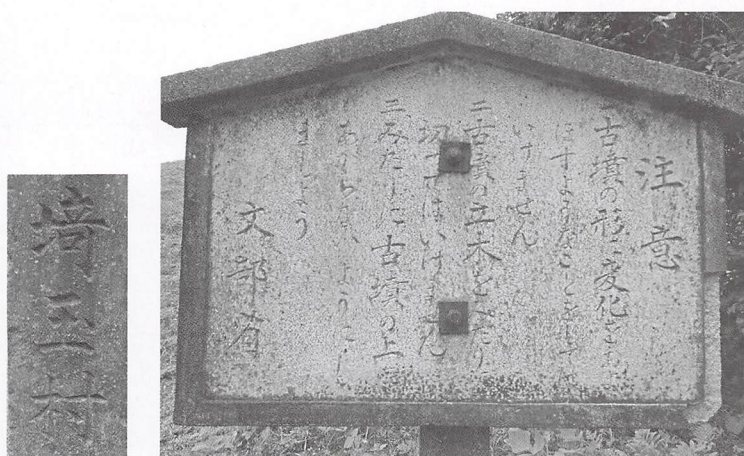 注意
一古墳の形に変化をおよ
ぼすようなことをしては
いけません
二古墳の立木をみだりに
切ってはいけません
三みだりに古墳の上に
あがらないようにし
ましょう
文部省
埼玉村